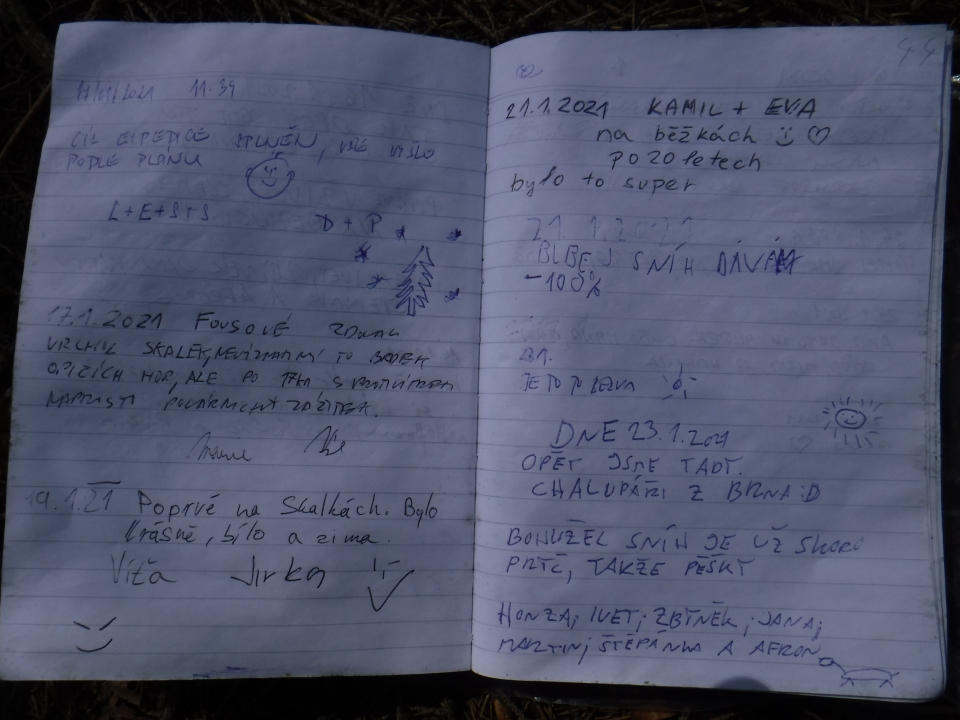 2021 11:39
CÍL EXPEDICE SPLNĚN, VŠE VYŠLO
PODLE PLÁNU
L+E+S+S
D + P
17.1.2021 FOUSOVÉ ZDOLALI
VRCHOL SKALEK, NEVÍME JESTLI TO
HOR, ALE PO 17KM S PROTIVĚTREM
ZÁŽITEK.
19.1.21 Poprvé na Skalkách. Bylo
krásně, bílo a zima.
Víťa Jirka
44
21.1.2021 KAMIL + EVA
na běžkách
po 20 letech
bylo to super
21.1.2021
BLBEJ SNÍH DÁVÁM
-100%
JE TO TO
DNE 23.1.2021
OPĚT JSME TADY.
CHALUPÁŘI Z BRNA :D
BOHUŽEL SNÍH JE UŽ SKORO
PRYČ, TAKŽE PĚŠKY
HONZA; IVET; ZBYNĚK; JANA;
MARTIN; ŠTĚPÁNKA A AFRON